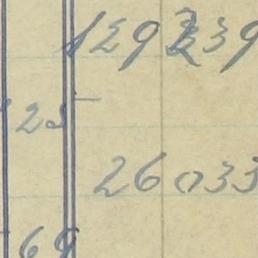 129 339
25
26 033
69